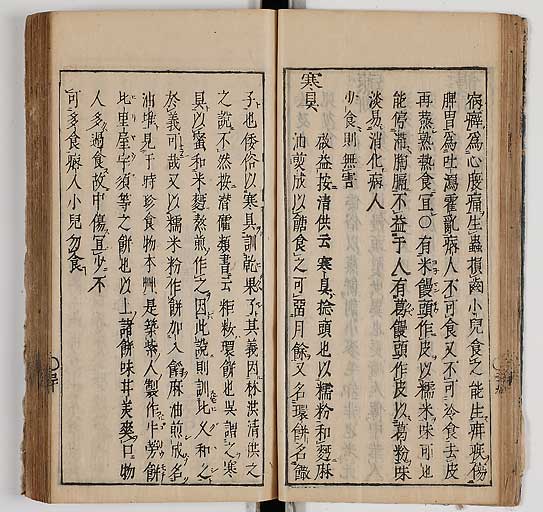 病癖爲心腹痛生蟲損齒小兒食之能生疳疾傷
脾胃爲吐瀉霍亂病人不可食又不可冷食去皮
再蒸熟熱食宜○有米饅頭作皮以糯米味可也
能停滯胸膈不益于人有葛饅頭作皮以葛粉味
淡易消化病人
少食則無害
寒具
啟益按清供云寒具捻頭也以糯粉和麪麻
油煎成以餹食之可留月餘又名環餅名饊
子也倭俗以寒具訓乾果了其義因林洪清供之
之說不然按潛確類書云粔籹環餅也吳謂之寒
具以蜜和米麪熬煎作之因此說則訓比义和之
於義可哉又以糯米粉作餅加入餡麻油煎成名
油堆見于時珍食物本艸是築紫人製作
比里屋宇須等之餅也以上諸餅味甘美爽口物
人多過食故中傷宜少不
可多食病人小兒勿食